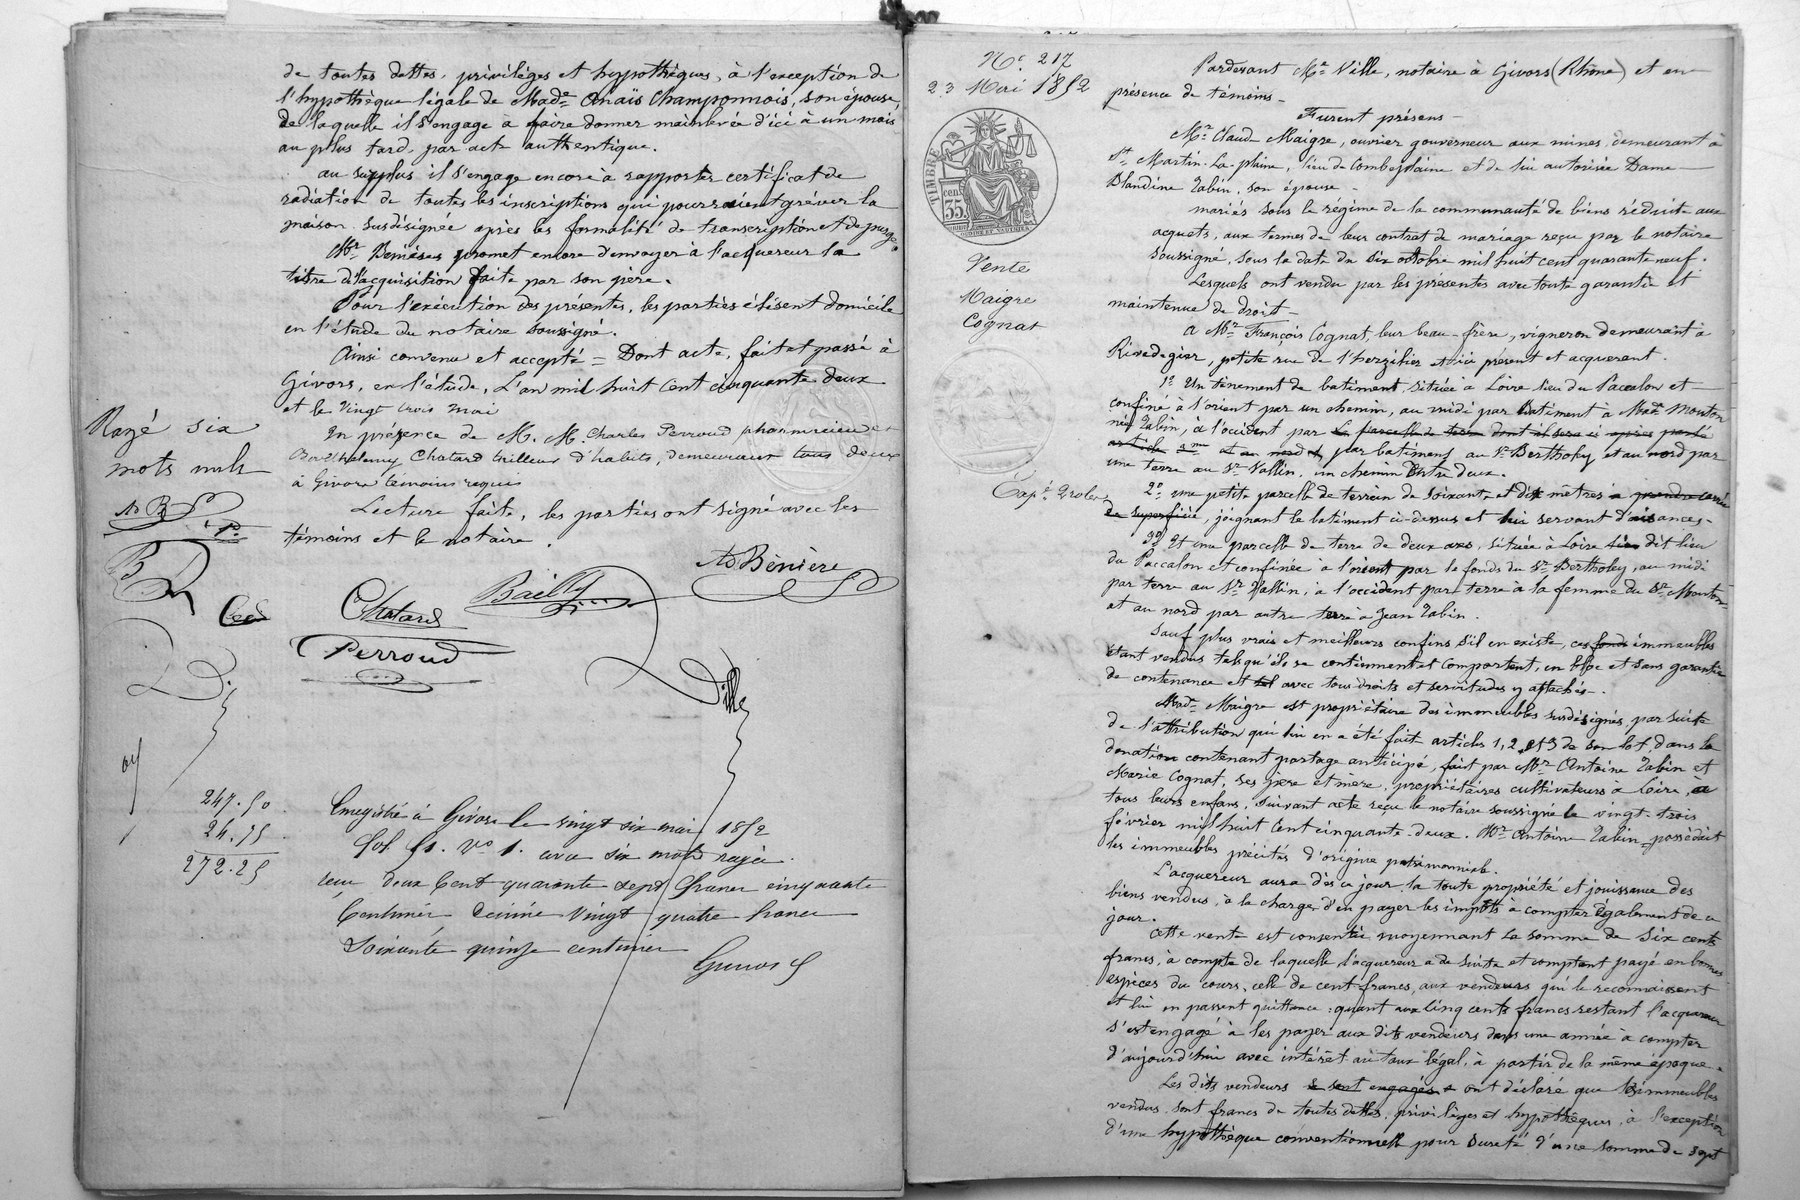 de toutes dettes, privilèges et hypothèques, à l'exception de
l'hypothèque légale de Made Anaïs Champonnois, son épouse,
de laquelle il s'engage à faire donner mainlevée d'ici à un mois
au plus tard, par acte authentique.
au surplus il s'engage encore à rapporter certificat de
radiation de toutes les inscriptions qui pourraient gréver la
maison susdésignée après les formalité de transcription et de purge.
Mr promet encore d'envoyer à l'acquereur la
titre d'acquisition faite par son père.
Pour l'exécution des présentes, les parties élisent domicile
en l'étude du notaire soussigné.
Ainsi convenu et accepté = Dont acte, fait et passé à
Givors, en l'étude, L'an mil huit cent cinquante deux
et le vingt trois mai
En présence de M. M. Charles Perroud pharmacien et
Barthelemy Chatard tailleur d'habits, demeurant tous deux
à Givors témoins requis
Lecture faite, les parties ont signé avec les
témoins et le notaire.
Rayé six
mots nuls
AB
P.
B
AD Bénière
Bailly
Chatard
Perroud
Ville
247.50
24.75
272.25
Enregistré à Givors le vingt six mai 1852
fol. 51. Vo 1. avec six mots rayés.
reçu deux cent quarante sept francs cinquante
centimes décime vingt quatre francs
soixante quinze centimes
No 217
23 Mai 1852
TIMBRE
35 cen
Vente
Maigre
Cognat
Pardevant Me Ville, notaire à Givors (Rhône) et en
présence de témoins -
Furent présens -
Mr Claude Maigre, ouvrier gouverneur aux mines, demeurant à
St Martin-La-plaine, lieu de Combeplaine et de lui autorisée Dame
Blandine Zabin, son épouse -
mariés sous le régime de la communauté de biens réduite aux
acquets, aux termes de leur contrat de mariage reçu par le notaire
soussigné, sous la date du six octobre mil huit cent quarante neuf.
Lesquels ont vendu par les présentes avec toute garantie et
maintenue de droit -
A Mr François Cognat, leur beau-frère, vigneron demeurant à
Rivedegier, petite rue de ici présent et acquerant.
1o Un tènement de batiment située à Loire lieu du Paccalon et
confiné à l'orient par un chemin, au midi par Batiment à Made Mouton
née Zabin, à l'occident par la parcelle de terre dont il sera ci après parlé
article 3me et au nord et par batiment au Sr Bertholey et au nord par
une terre au Sr Vallin, un chemin entre deux.
2o une petite parcelle de terrain de soixante et dix mètres à prendre
de superficie, joignant le batiment ci-dessus et lui servant d'aisances -
3o Et une parcelle de terre de deux ares, située à Loire lieu dit lieu
du Paccalon et confinée à l'orient par le fonds du Sr Bertholey, au midi
par terre au Sr Vallin, à l'occident par terre à la femme du Sr Mouton
et au nord par autre terre à Jean Zabin.
Sauf plus vrais et meilleurs confins s'il en existe, ces fonds immeubles
étant vendus tels qu'ils se contiennent et comportent, en bloc et sans garantie
de contenance et tel avec tous droits et servitudes y attachés -.
Made Maigre est propriétaire des immeubles susdésignés, par suite
de l'attribution qui lui en a été fait articles 1, 2 et 3 de son lot, dans la
donation contenant partage anticipé, fait par Mr Antoine Zabin et
Marie Cognat, ses père et mère, propriétaires cultivateurs à Loire, à
tous leurs enfans, suivant acte reçu le notaire soussigné le vingt-trois
février mil huit cent cinquante-deux. Mr Antoine Zabin possèdait
les immeubles précités d'origine patrimoniale.
L'acquereur aura dès ce jour la toute propriété et jouissance des
biens vendus, à la charge d'en payer les impôts à compter également de ce
jour.
Cette vente est consentie moyennant la somme de Six cents
francs, à compte de laquelle l'acquereur a de suite et comptant payé en bonnes
espèces du cours, celle de cent francs, aux vendeurs qui le reconnaissent
et lui en passent quittance : quant aux cinq cents francs restant l'acquereur
s'est engagé à les payer aux dits vendeurs dans une année à compter
d'aujourd'hui avec intérêt au taux légal, à partir de la même époque.
Les dits vendeurs se sont engagés a ont déclaré que les immeubles
vendus sont francs de toutes dettes, privilèges et hypothèques, à l'exception
d'une hypothèque conventionnelle pour sureté d'une somme de sept